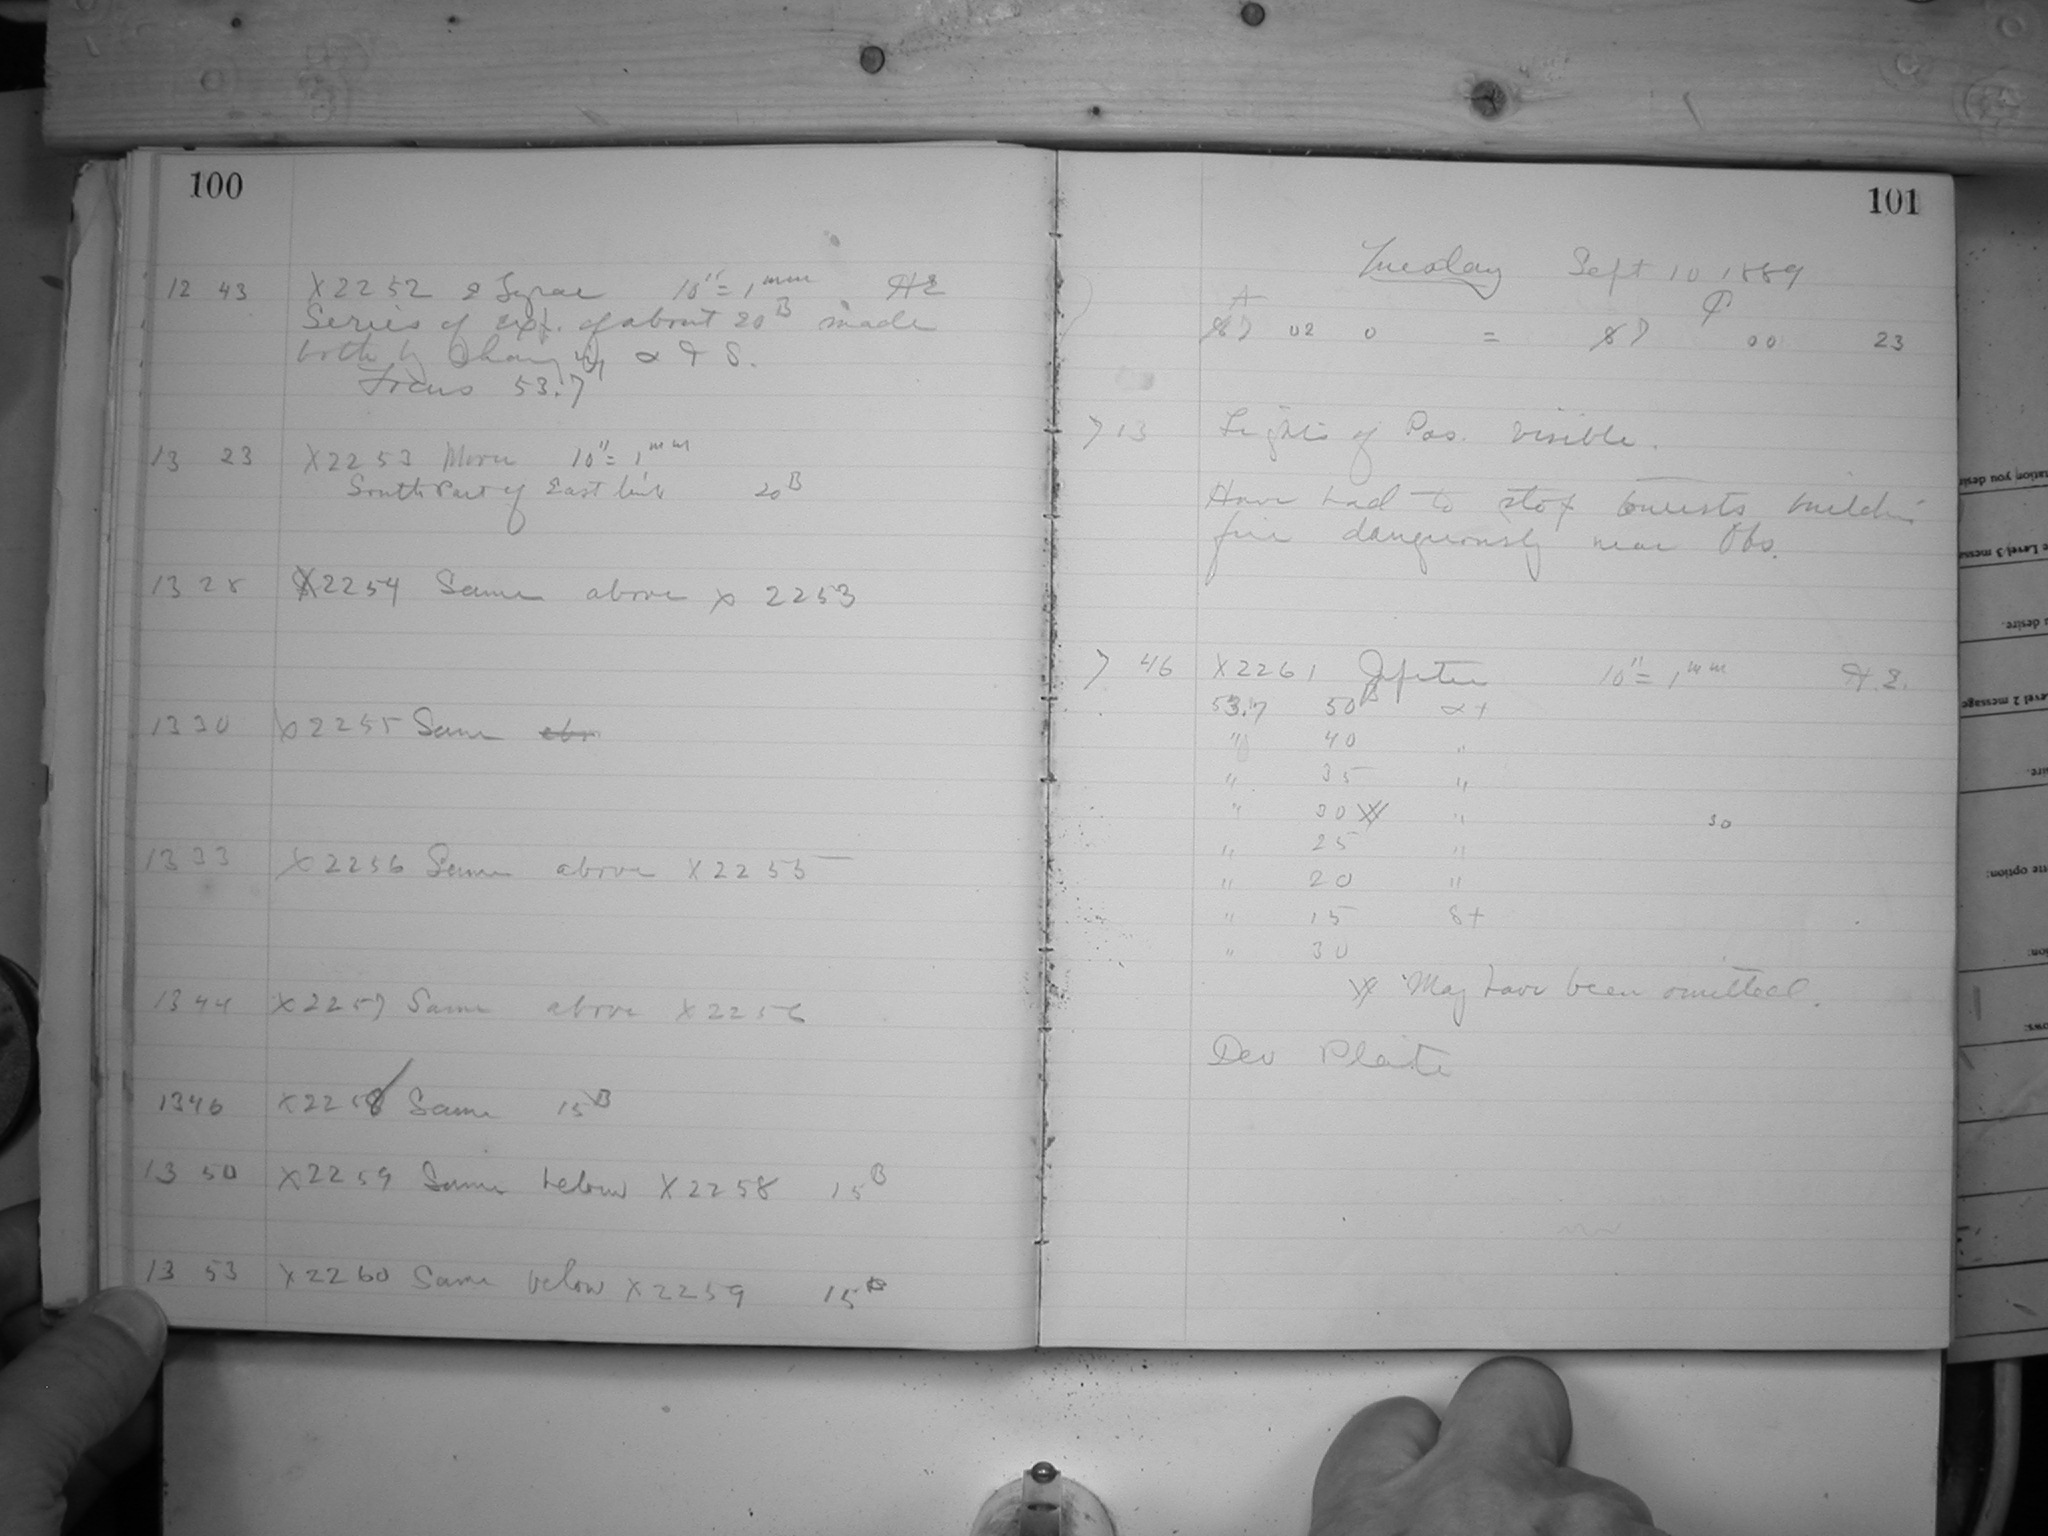 100
12 43 X2252 ε Lyrae 10"=1mm HE
Series of exp. of about 20B made
both by changing α & δ.
Focus 53.7
13 23 X2253 Moon 10"=1mm
South Part of East limb 20B
13 28 X2254 Same above X 2253
13 30 X2255 Same
13 33 X2256 Same above X2255
13 44 X2257 Same above X2256
13 46 X2258 Same 15B
13 50 X2259 Same below X2258 15B
13 53 X2260 Same below X2259 15B
101
Tuesday Sept 10 1889
A
7 02 0 = 7 00 23
7 13 Lights of Pas. visible.
Have had to stop tourists building
fire dangerously near Obs.
7 46 X2261 Jupiter 10"=1mm H.E.
53.7 50B α+
" 40 "
" 35 "
" 30 X " 30
" 25 "
" 20 "
" 15 δ+
" 30
X May have been omitted.
Dev Plate